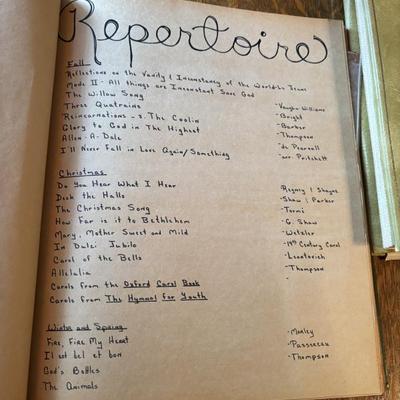 Repertoire
Fall
Reflections on the Vanity & Inconstancy of the World - Le Jeune
Mode II - All things are Inconstant Save God
The Willow Song - Vaughn-Williams
Three Quatrains - Bright
Reincarnations - 3. The Coolin - Barber
Glory to God in The Highest - Thompson
Allen-A-Dale - de Pearsall
I'll Never Fall in Love Again/Something - arr. Pritchett
Christmas
Do You Hear What I Hear - Regney & Shayne
Deck the Halls - Shaw & Parker
The Christmas Song - Tormé
How Far is it to Bethlehem - G. Shaw
Mary, Mother Sweet and Mild - Wetzler
In Dulci Jubilo - 14th Century Carol
Carol of the Bells - Leontovich
Allelulia - Thompson
Carols from the Oxford Carol Book -
Carols from The Hymnal For Youth
Winter and Spring
Fire, Fire My Heart - Morley
Il est bel et bon - Passereau
God's Bottles - Thompson
The Animals